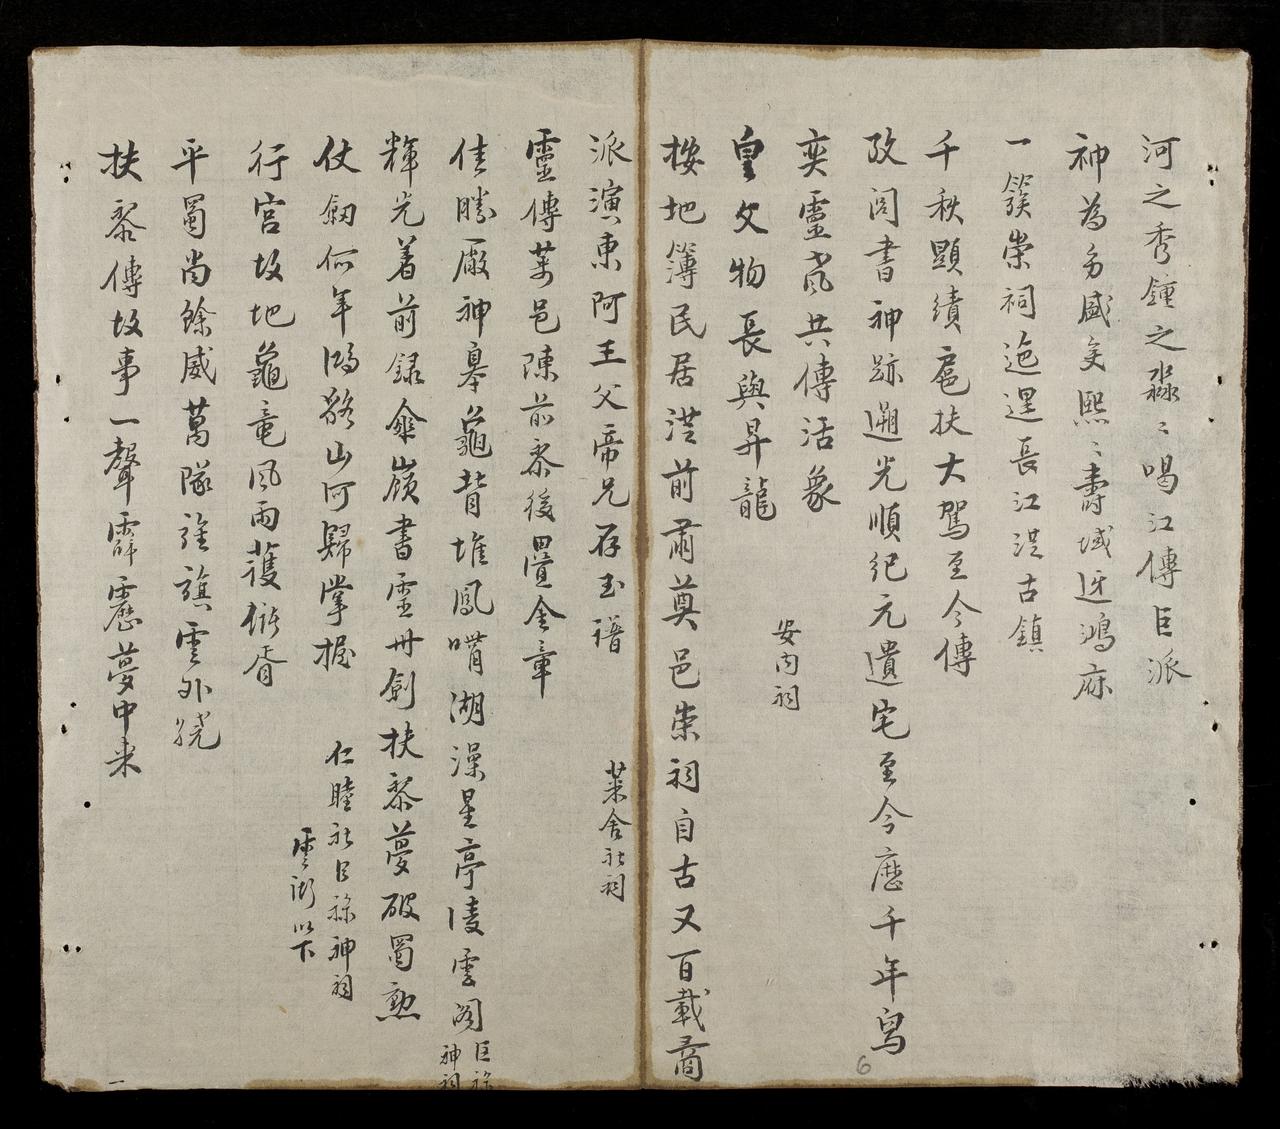 河之秀鍾之淼〻喝江傳巨派
神為多盛矣熙〻壽域迓鴻庥
一簇崇祠迤邐長江洪古鎮
千秋顯績扈扶大駕至今傳
攷閲書神跡遡光順紀元遺宅至今歷千年寫
奕靈度共傳活象
皇文物長與昇龍
安内祠
按地簿民居洪前肅奠邑崇祠自古又百載
派演東阿王父帝兄存玉譜
萊舍社祠
靈傳萊邑陳前黎後疊金章
佳勝厰神皋龜背堆鳳嘴湖澡星亭淩雲閣
巨祿
神祠
輝光着前録傘嶺書靈冊劍扶黎夢破蜀勲
仗劒何年鴻貉山河歸掌握
仁睦社巨祿神祠
雲衢以下
行宮故地龜竜風雨護儲胥
平蜀尚餘威萬隊旌旗雲外繞
扶黎傳故事一聲霹靂夢中來
一
6